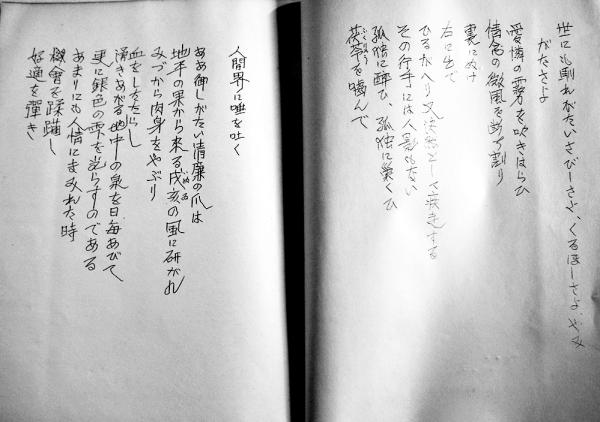 世にも馴れがたいさびしさよ、くるほしさよ、やみ
がたさよ
愛憐の霧を吹きはらひ
情念の微風を断ち割り
裏にぬけ
右に出で
ひるがへり又決然として疾走する
その行手には人影もない
孤独に酔ひ、孤独に巣くひ
茯苓を噛んで
人間界に唾を吐く
ああ御しがたい清廉の爪は
地平の果から来る戌亥の風に研がれ
みづから肉身をやぶり
血をしたたらし
湧きあがる地中の泉を日毎あびて
更に銀色の雫を光らすのである
あまりにも人情にまみれた時
機会を蹂躪し
好適を弾き